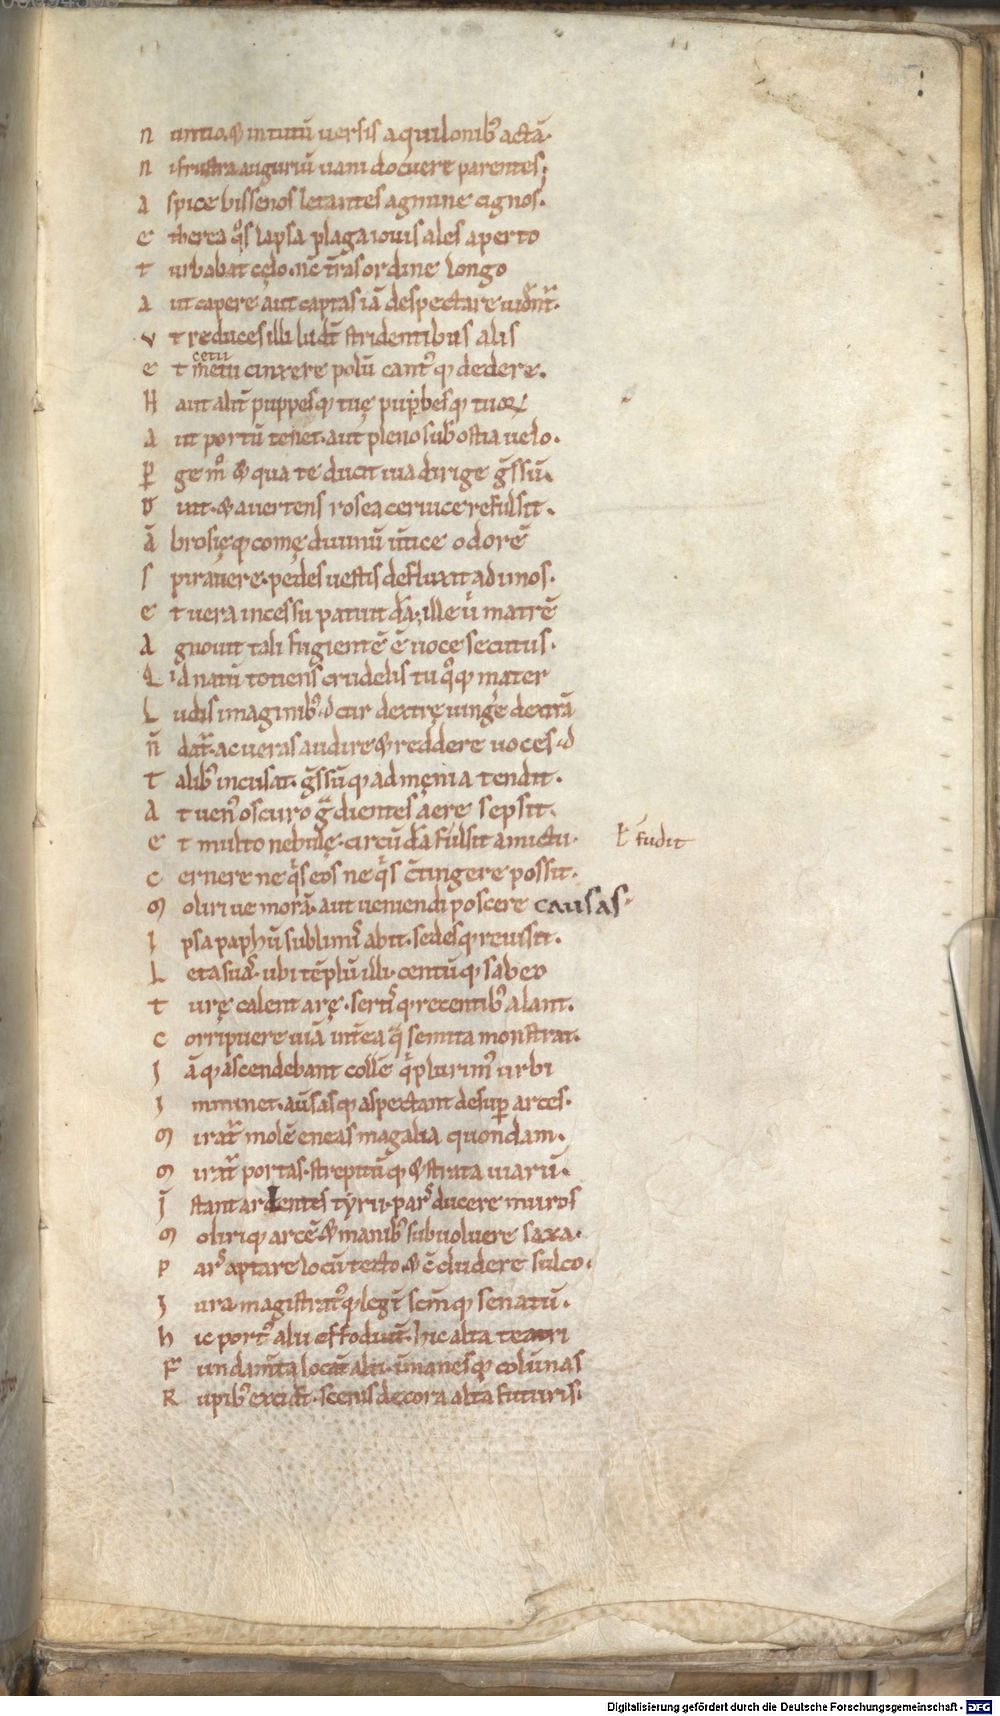 n untio. & in tutū uersis aquilonib; actā.
n i frustra auguriū uani docuere parentes;
a spice bissenos letantes agmine cignos.
e therea q̊s lapsa plaga iouis ales aperto
t urbabat cęlo. nc̄ t̄ras ordine longo
a ut capere aut captas iā despectare uidnt̄.
v t reduces illi ludt̄ stridentibus alis
cetu
e t metu cinxere polū cantꝰ q; dedere.
H aut alit̄ puppesq; tuę pupbesq; tuoꝝ
a ut portū tenet. aut pleno subit ostia uelo.
P̄ ge m̊ & qua te ducit uia dirige ḡssū.
D ixit. & auertens rosea ceruice refulsit.
ā brosięq; comę diuinū ūtice odorē
s pirauere. pedes uestis defluxit ad imos.
e t uera incessu patuit dā. ille ů matrē
A gnouit tali fugientē ē uoce secutus.
Q id natū totiens crudelis tu q̊q; mater
L udis imaginib; cur dextrę iungere dextrā
n̄ dat̄. ac ueras audire & reddere uoces
T alib; incusat. g̃ssūq; ad męnia tendit.
A t uenꝰ oscuro g̃dientes aere sepsit.
e t multo nebulę. circū dā fulsit amictu.
ł fudit
c ernere ne q̇s eos ne q̇s c̄tingere possit.
M oliri ue morā. aut ueniendi poscere causas.
I psa paphū sublimis abit. sedesq; reuisit.
L eta suas. ubi tēplū illi. centūq; sabeo
t ure calent arę. sertisq; recentib; alant.
C orripuere uiā int̄ea q̃ semita monstrat.
I āq; ascendebant collē q̇ plurimꝰ urbi
I mminet. aūsasq; aspectant desup arces.
M irat̄ molē eneas magalia quondam.
M irat̄ portas. strepitūq; & strata uiarū.
I̅ stant ardentes tyrii. pars ducere muros
M oliriq; arcē & manib; subuoluere saxa.
P ars aptare locū tecto. & c̄cludere sulco.
I ura magistratꝰq; legt̄ scm̄q; senatū.
h ic portꝰ alii effodiut̄. hic alta teatri
F undam̄ta locat̄ alii. imanesq; colūnas
R upib; excidt̄. scenis decora alta futuris.
Digitalisierung gefördert durch die Deutsche Forschungsgemeinschaft - DFG